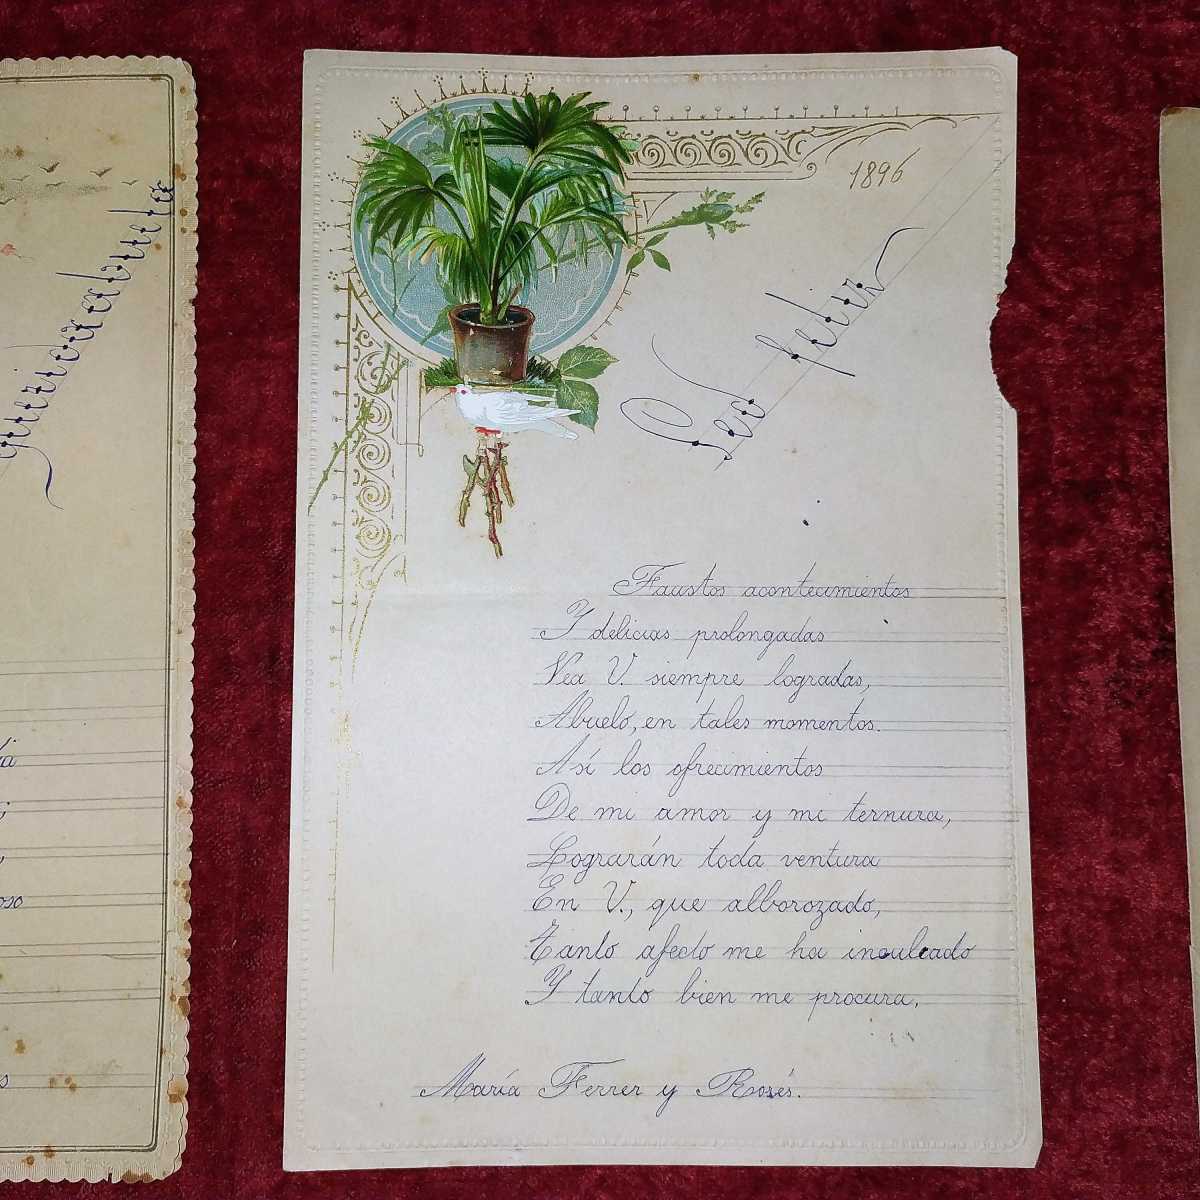 Querida abuela
oso
1896
Sed feliz
Faustos acontecimientos
Y delicias prolongadas
Vea V. siempre logradas,
Abuelo, en tales momentos.
Así los ofrecimientos
De mi amor y mi ternura,
Lograrán toda ventura
En V., que alborozado,
Tanto afecto me ha inculcado
Y tanto bien me procura.
María Ferrer y Rosés.